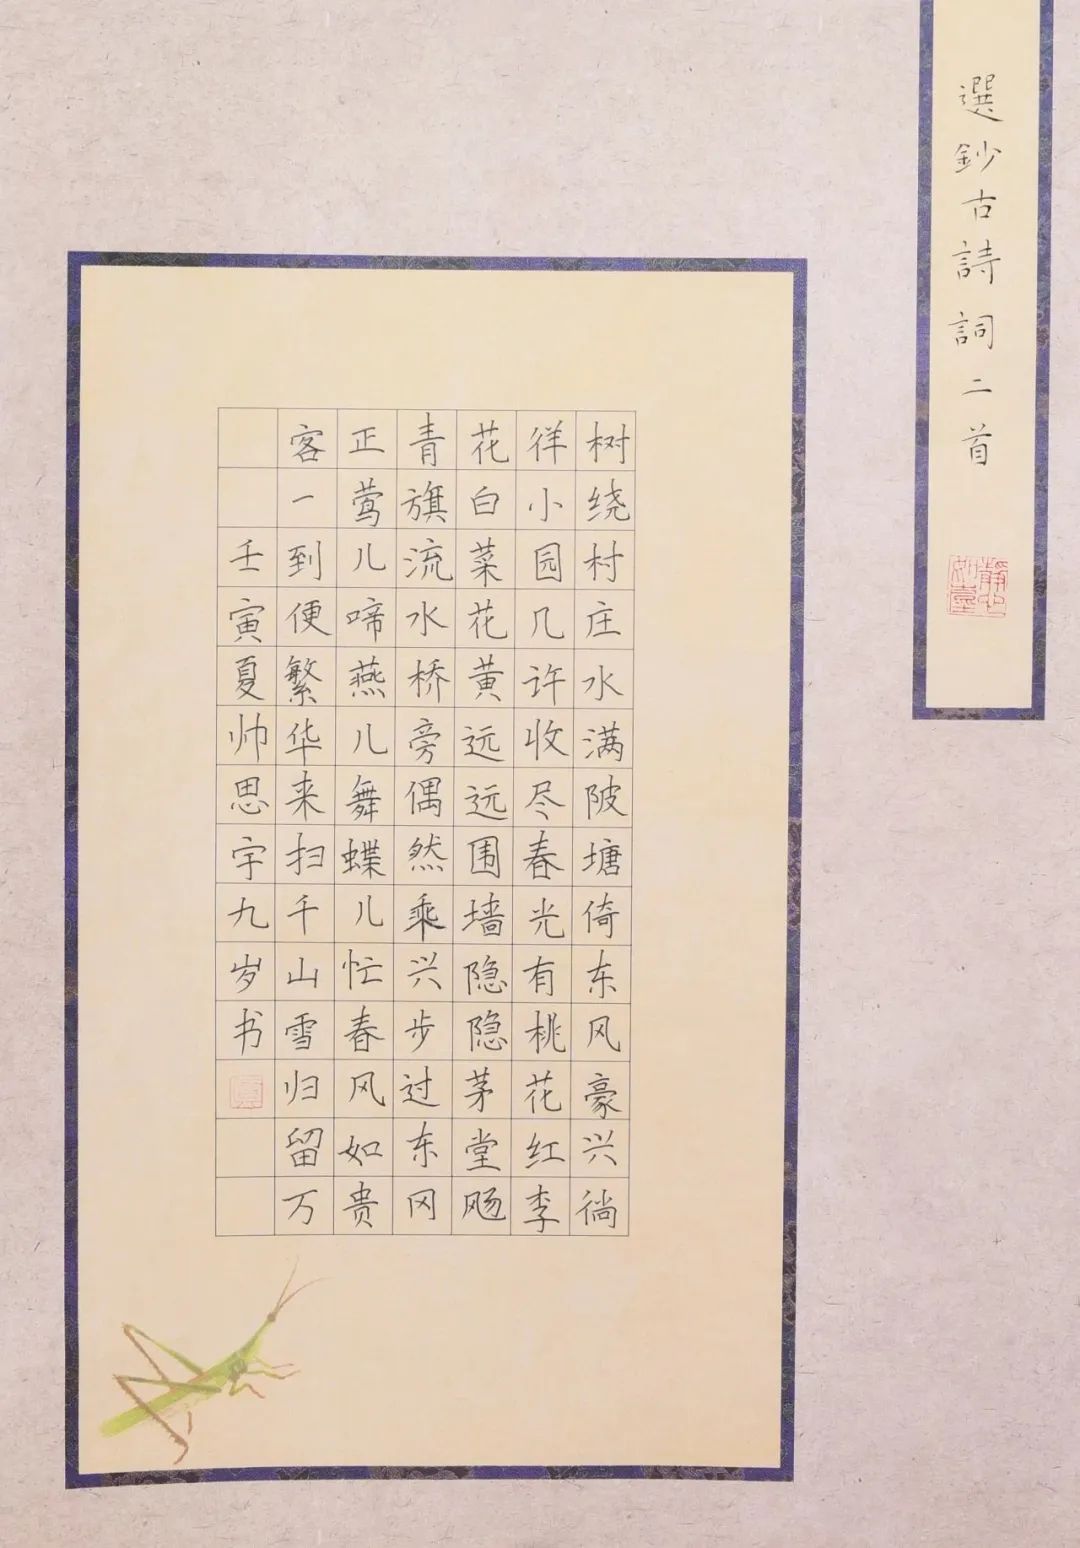 選鈔古詩詞二首
树绕村庄水满陂塘倚东风豪兴徜
徉小园几许收尽春光有桃花红李
花白菜花黄远远围墙隐隐茅堂飏
青旗流水桥旁偶然乘兴步过东冈
正莺儿啼燕儿舞蝶儿忙春风如贵
客一到便繁华来扫千山雪归留万
壬寅夏帅思宇九岁书